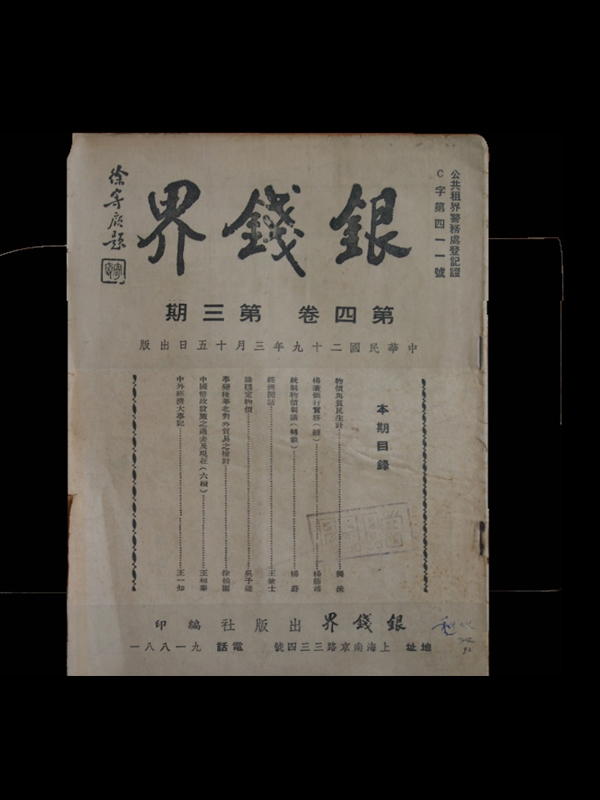 公共租界警務處登記證
C字第四一一號
銀錢界
徐寄廎題
第四卷 第三期
中華民國二十九年三月十五日出版
本期目錄
物價與貧民生計
楊蔭溥
統制物價芻議（轉載） 楊蔚
經濟閒話
論穩定物價 吳子
事變後華北對外貿易之檢討
中國幣政設施之過去及現在（六續） 王相秦
中外經濟大事記 王一知
銀錢界出版社編印
地址 上海南京路三三四號 電話 九一八八一